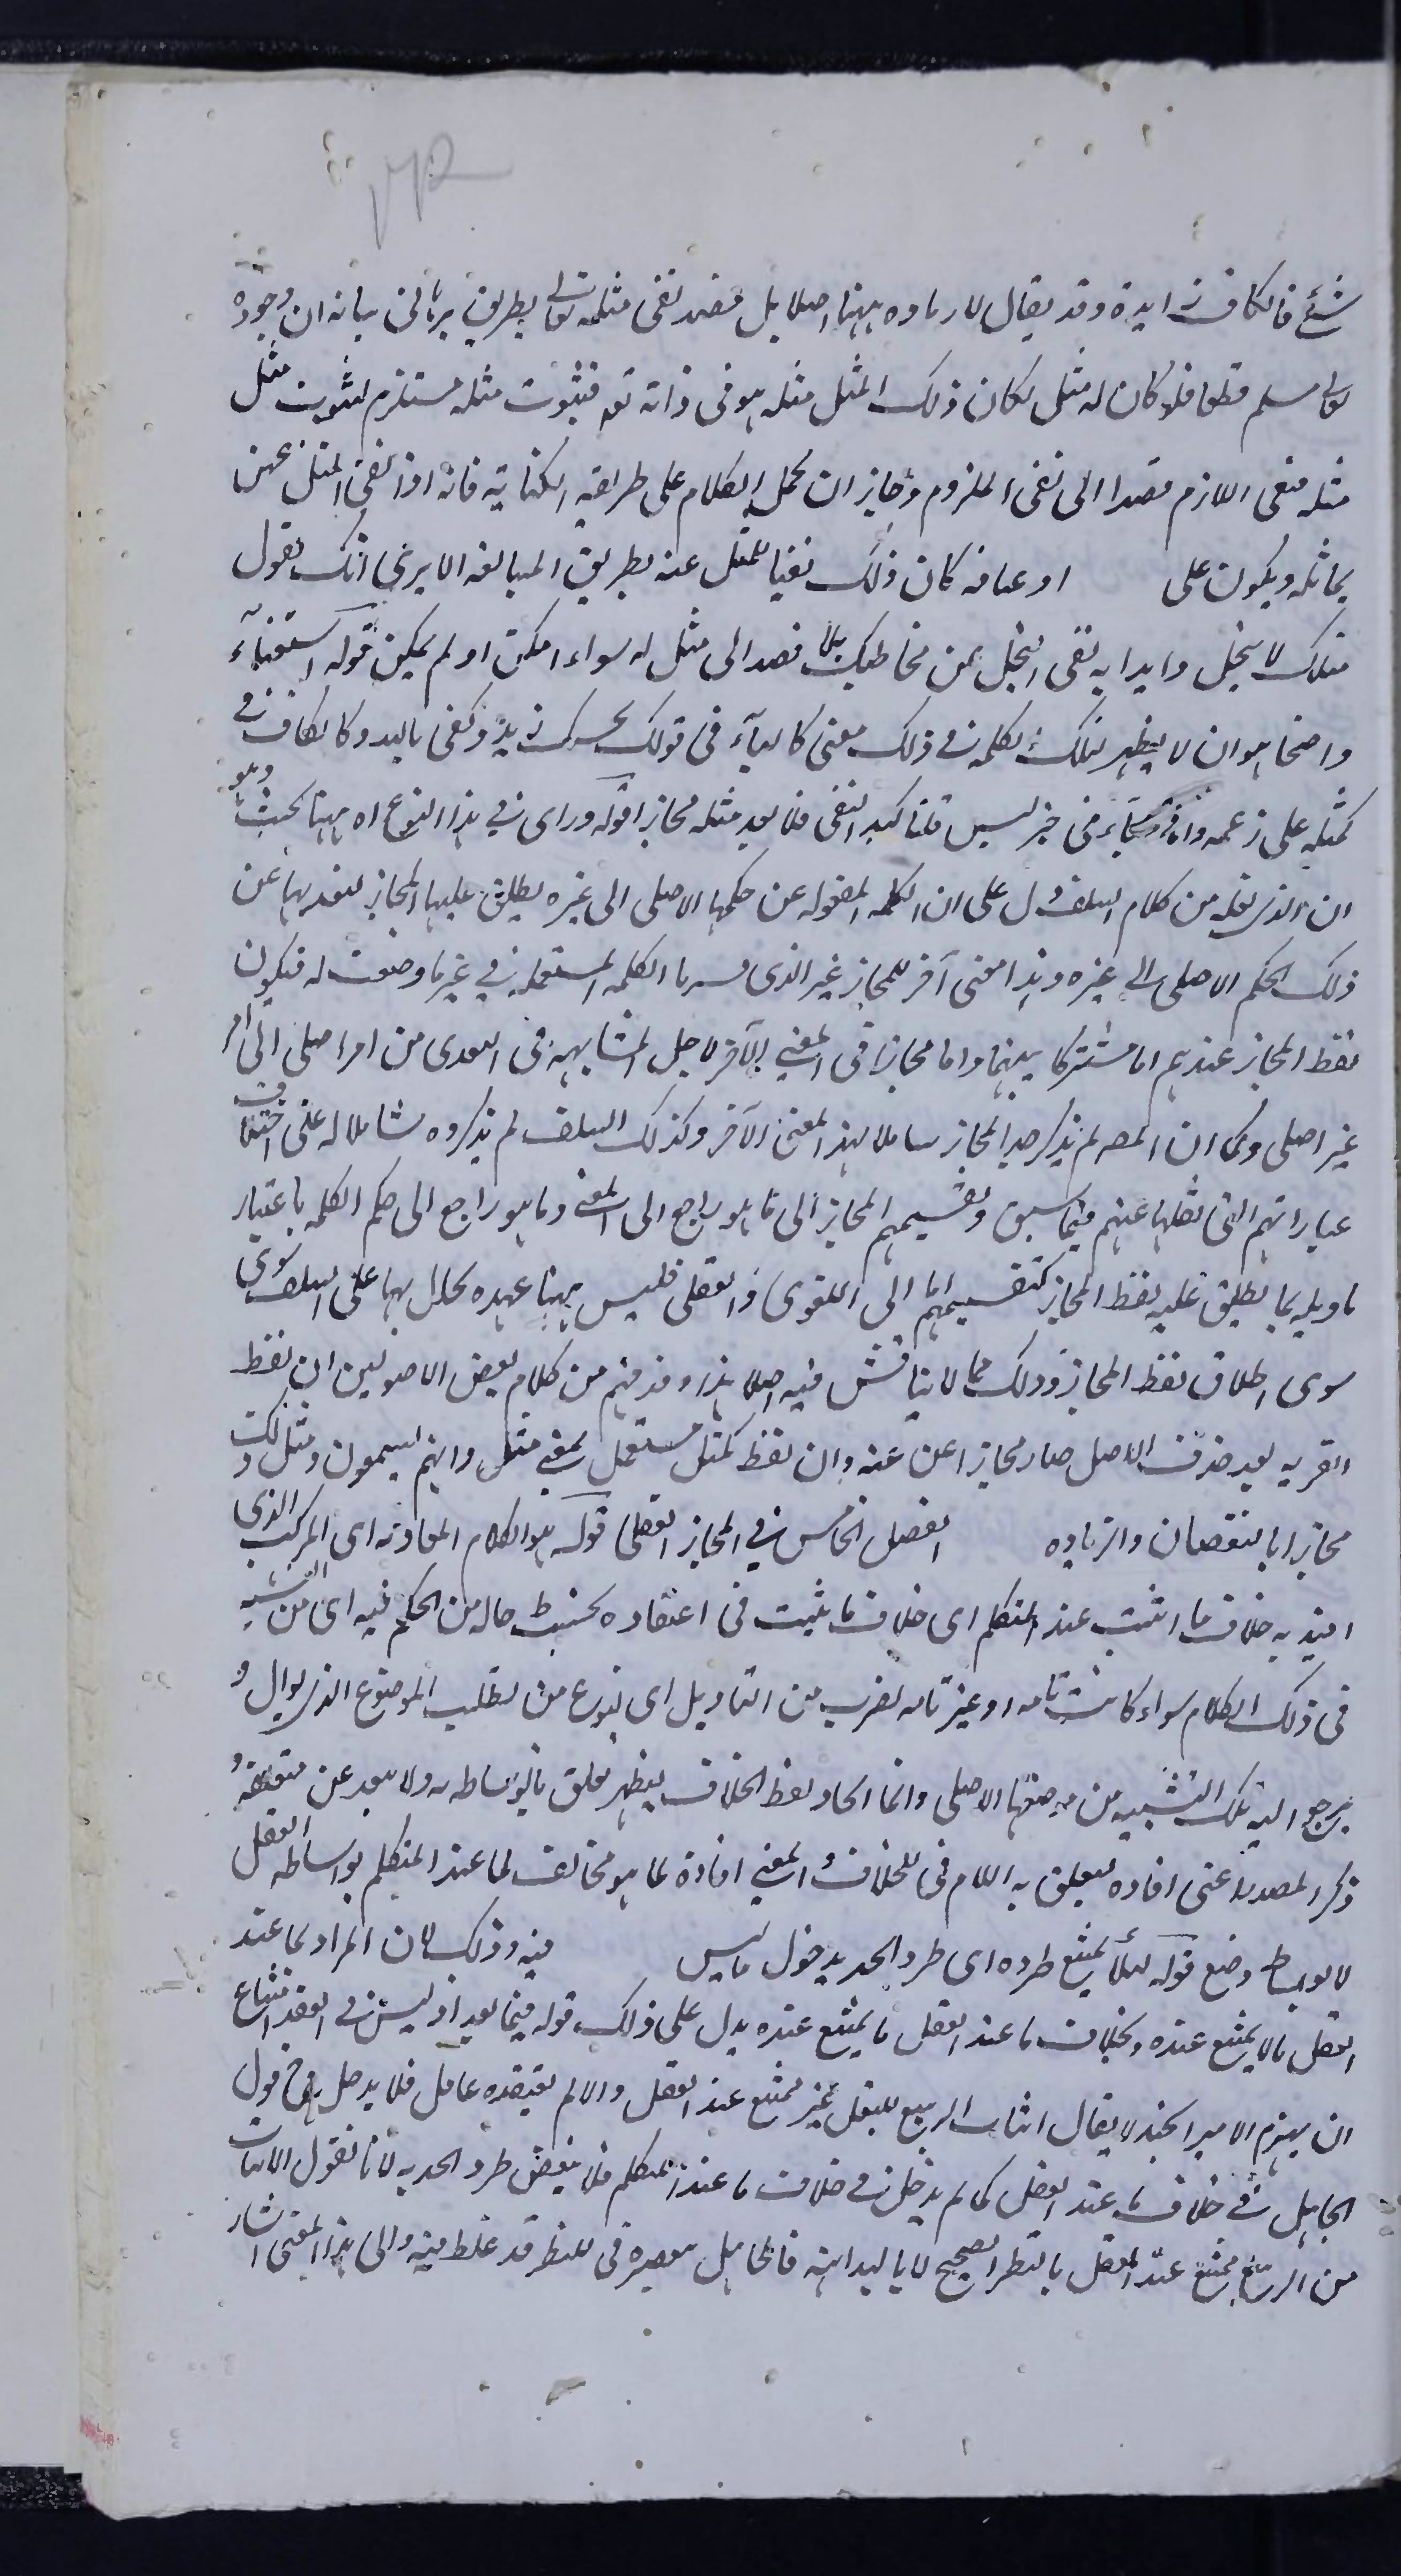 شئ فالكاف زايدة وقد يقال لا زياده ههنا اصلا بل قصد نفى مثله تعالى بطريق برهانى بيانه ان وجوده
تعالى مسلم قطعا فلو كان له مثل لكان ذلك المثل مثله هو فى ذاته تعم فثبوت مثله مستلزم لثبوت مثل
مثله فنفى اللازم قصدا الى نفى الملزوم وجاز ان يحمل الكلام على طريقه الكنايه فانه اذا نفى المثل عمن
يماثله ويكون على او صافه كان ذلك نفيا للمثل عنه بطريق المبالغه الا يرى انك تقول
مثلك لا يبخل وايدا به نفى البخل عمن مخاطبك بلا قصد الى مثل له سواء امكن او لم يمكن قوله استغناء
واضحا هو ان لا يظهر لتلك الكلمه فى ذلك معنى كالباء فى قولك بحسبك زيد وكفى بالله وكالكاف فى
كمثله على زعمه واما الباء فى خبر ليس قلتاكيد النفى فلا يعد مثله مجازا قوله وراى فى هذا النوع اه ههنا بحث وهو
ان الذى نقله من كلام السلف دل على ان الكلمه المنقوله عن حكمها الاصلى الى غيره يطلق عليها المجاز لتعديها عن
ذلك الحكم الاصلى الى غيره وهذا معنى آخر للمجاز غير الذى فسر بها الكلمه المستعمله فى غير ما وضعت له فيكون
لفظ المجاز عندهم اما مشتركا بينهما واما مجازا فى المعنى الآخر لاجل المشابهه فى التعدى من امر اصلى الى امر
غير اصلى وكما ان المصه لم يذكر حد المجاز شاملا لهذا المعنى الآخر وكذلك السلف لم يذكروه شاملا له على اختلاف
عباراتهم التى نقلها عنهم فيما سبق وتقسيمهم المجاز الى ما هو راجع الى المعنى وما هو راجع الى حكم الكلمه باعتبار
تاويله بما يطلق عليه لفظ المجاز كتقسيمهم اياه الى اللغوى والعقلى فليس ههنا عهده يحال بها على السلف سوى
سوى اطلاق لفظ المجاز وذلك مما لا يناقش فيه اصلا هذا وقد فهم من كلام بعض الاصوليين ان لفظ
القريه بعد حذف الاهل صار مجازا عن عنه وان لفظ كمثل مستعمل بمعنى مثل وانهم يسمون مثل ذلك
مجازا بالنقصان والزياده الفصل الخامس فى المجاز العقلى قوله هو الكلام المفاد به اى المركب الذى
افيد به خلاف ما اثبت عند المتكلم اى خلاف ما يثبت فى اعتقاده بحسب حاله من الحكم فيه اى من النسبه
فى ذلك الكلام سواء كانت تامه او غير تامه لضرب من التاويل اى بنوع من تطلب الموضوع الذى يؤال و
يرجع اليه تلك النسبه من موضعها الاصلى وانما اعاد لفظ الخلاف ليظهر تعلق بالوساطه به ولا يبعد عن متعلقه و
ذكر المصدر اعنى افاده ليتعلق به اللام فى للخلاف والمعنى افادة لما هو مخالف لما عند المتكلم بواسطه العقل
لا بوسط وضع قوله لئلا يمتنع طرده اى طرد الحد بدخول ما ليس فيه وذلك لان المراد بما عند
العقل ما لا يمتنع عنده وبخلاف ما عند العقل ما يمتنع عنده يدل على ذلك قوله فيما بعد اذ ليس فى العقد امتناع
ان يهزم الامير الجند لا يقال اثبات الربيع للبقل غير ممتنع عند العقل والا لم يعتقده عاقل فلا يدخل ح قول
الجاهل فى خلاف ما عند العقل كما لم يدخل فى خلاف ما عند المتكلم فلا ينتقض طرد الحد به لانا نقول الاثبات
من الربيع ممتنع عند العقل بالنظر الصحيح لا بالبداهه فالجاهل مقصره فى النظر قد غلط فيه والى هذا المعنى اشار